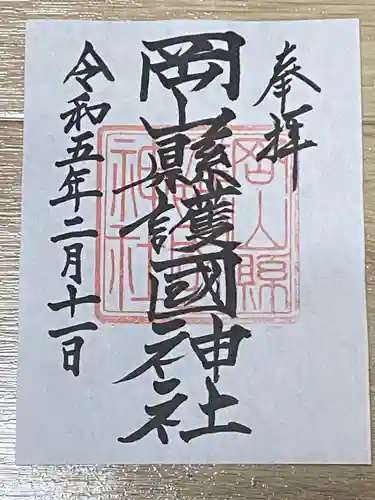 奉拝
岡山縣護國神社
令和五年二月十一日
岡山縣
護國
神社